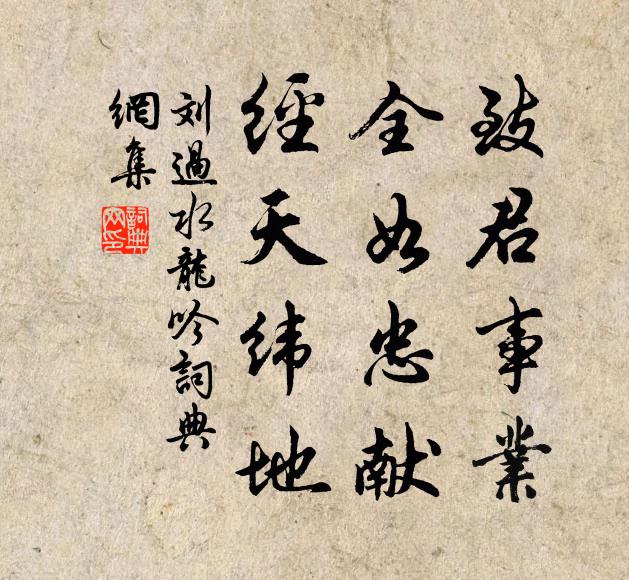 致君事業
全如忠献
經天緯地
刘過水龍吟詞典
網集
詞典
网印